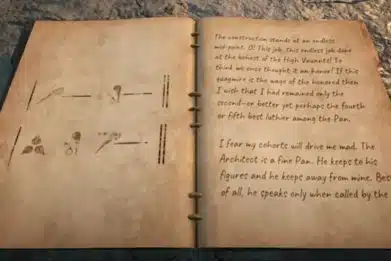 The construction stands at an endless
mid-point. (3) This job, this endless job done
at the behest of the High Vaunts! To
think we once thought it an honor! If this
quagmire is the wage of the honored then
I wish that I had remained only the
second—or better yet, perhaps the fourth
or fifth best luthier among the Pan.
I fear my cohorts will drive me mad. The
Architect is a fine Pan. He keeps to his
figures and he keeps away from mine. Best
of all, he speaks only when called by the